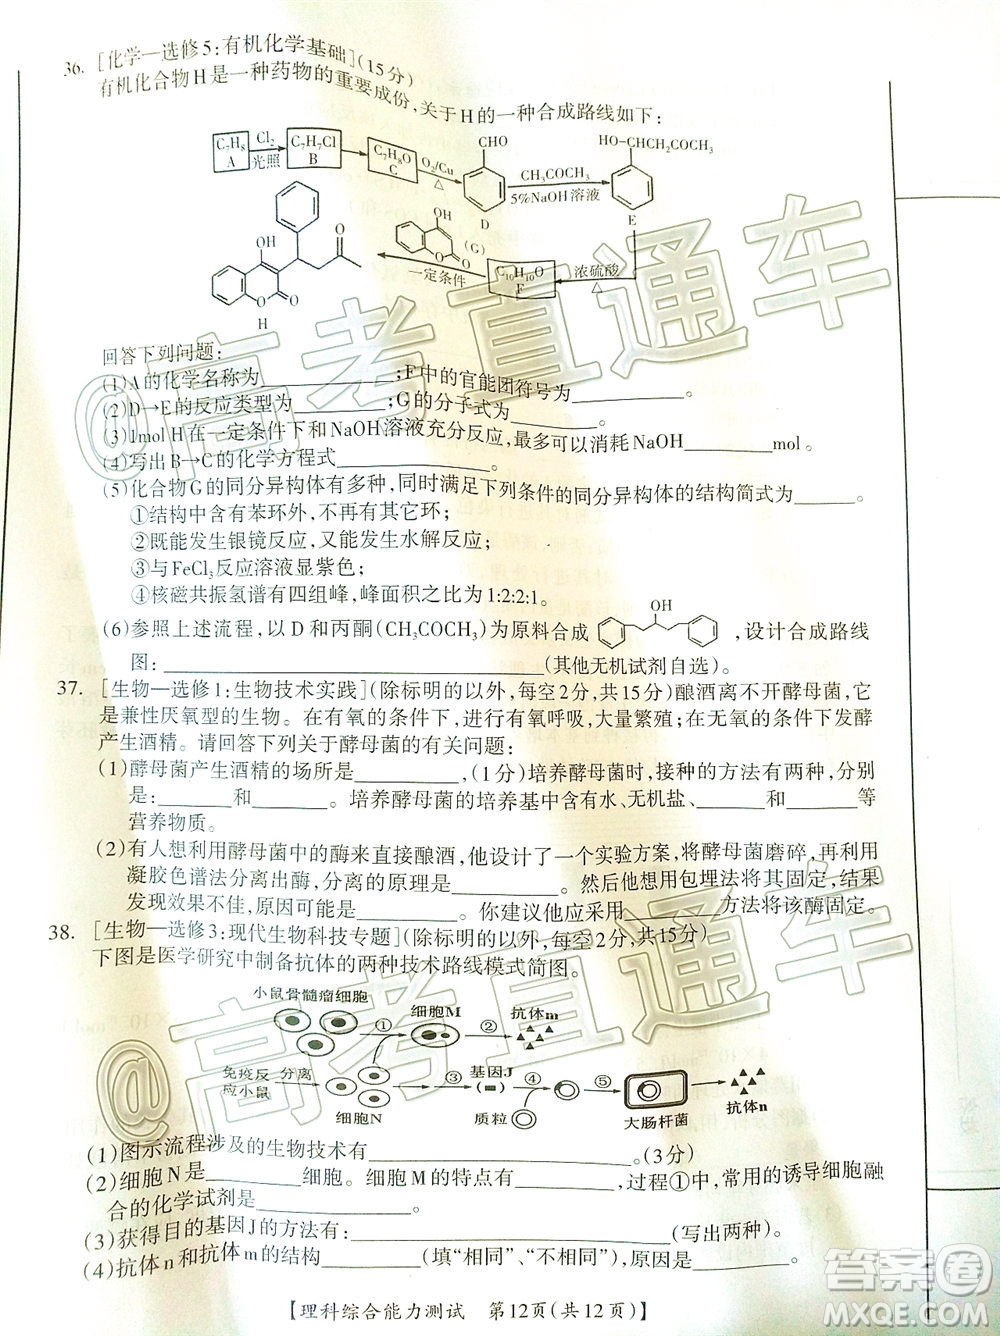 36. [化学—选修5:有机化学基础](15分)
有机化合物H是一种药物的重要成份,关于H的一种合成路线如下:
C7H8 A Cl2 光照 C7H7Cl B C7H8O C O2/Cu △ CHO D CH3COCH3 5%NaOH溶液 HO-CHCH2COCH3 E
OH O O (G) 一定条件 C10H10O F 浓硫酸 △
OH O O O H
回答下列问题:
(1)A的化学名称为________;F中的官能团符号为________。
(2)D→E的反应类型为________;G的分子式为________。
(3)1mol H在一定条件下和NaOH溶液充分反应,最多可以消耗NaOH________mol。
(4)写出B→C的化学方程式________。
(5)化合物G的同分异构体有多种,同时满足下列条件的同分异构体的结构简式为________。
①结构中含有苯环外,不再有其它环;
②既能发生银镜反应,又能发生水解反应;
③与FeCl3反应溶液显紫色;
④核磁共振氢谱有四组峰,峰面积之比1:2:2:1。
(6)参照上述流程,以D和丙酮(CH3COCH3)为原料合成 OH ,设计合成路线
图:________(其他无机试剂自选)。
37. [生物—选修1:生物技术实践](除标明的以外,每空2分,共15分)酿酒离不开酵母菌,它
是兼性厌氧型的生物。在有氧的条件下,进行有氧呼吸,大量繁殖;在无氧的条件下发酵
产生酒精。请回答下列关于酵母菌的有关问题:
(1)酵母菌产生酒精的场所是________,(1分)培养酵母菌时,接种的方法有两种,分别
是:________和________。培养酵母菌的培养基中含有水、无机盐、________和________等
营养物质。
(2)有人想利用酵母菌中的酶来直接酿酒,他设计了一个实验方案,将酵母菌磨碎,再用
凝胶色谱法分离出酶,分离的原理是________。然后他想用包埋法将其固定,
发现效果不佳,可能原因是________。你建议他应采用________方法将该酶固定。
38. [生物—选修3:现代生物科技专题](除标明的以外,每空2分,共15分)
下图是医学研究中制备抗体的两种技术路线模式简图。
小鼠骨髓瘤细胞 ① 细胞M ② 抗体m
免疫反应小鼠 分离 细胞N ③ 基因J ④ 质粒 ⑤ 大肠杆菌 抗体n
(1)图示流程涉及的生物技术有________。(3分)
(2)细胞N是________细胞。细胞M的特点有________,过程①中,常用的诱导细胞融
合的化学试剂是________。
(3)获得目的基因J的方法有:________(写出两种)。
(4)抗体n和抗体m的结构________(填“相同”、“不相同”),原因是________。
【理科综合能力测试 第12页(共12页)】
@高考直通车
@高考直通车
答案圈
MXQE.COM